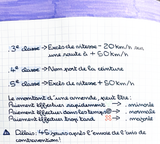 3e classe → Excès de vitesse - 20 km/h sur
une route à + 50 km/h
4e classe → Non port de la ceinture
5e classe → Excès de vitesse + 50 km/h
Le montant d'une amende, peut être :
Paiement effectuer rapidement → minorée
Paiement effectuer dans les temps → normale
Paiement effectuer trop tard → majorée
Délais : 45 jours après l'envoie de l'avis de
contravention !